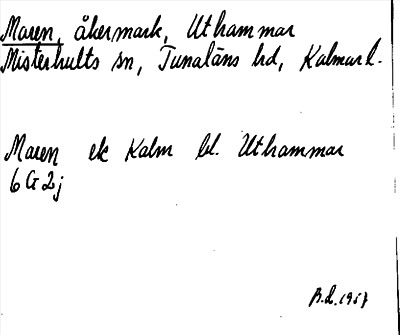 Maren, åkermark, Uthammar
Misterhults sn, Tunaläns hd, Kalmar l.
Maren ek Kalm bl. Uthammar
6 G 2 j
B.L. 1957